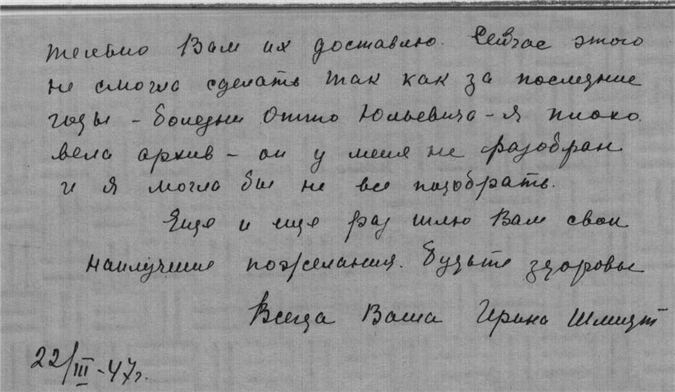 тельно Вам их доставлю. Сейчас этого
не смогла сделать так как за последние
годы – болезни Отто Юльевича – я плохо
вела архив – он у меня не разобран
и я могла бы не все подобрать.
Еще и еще раз шлю Вам свои
наилучшие пожелания. Будьте здоровы
Всегда Ваша Ирина Шмидт
22/III – 47г.